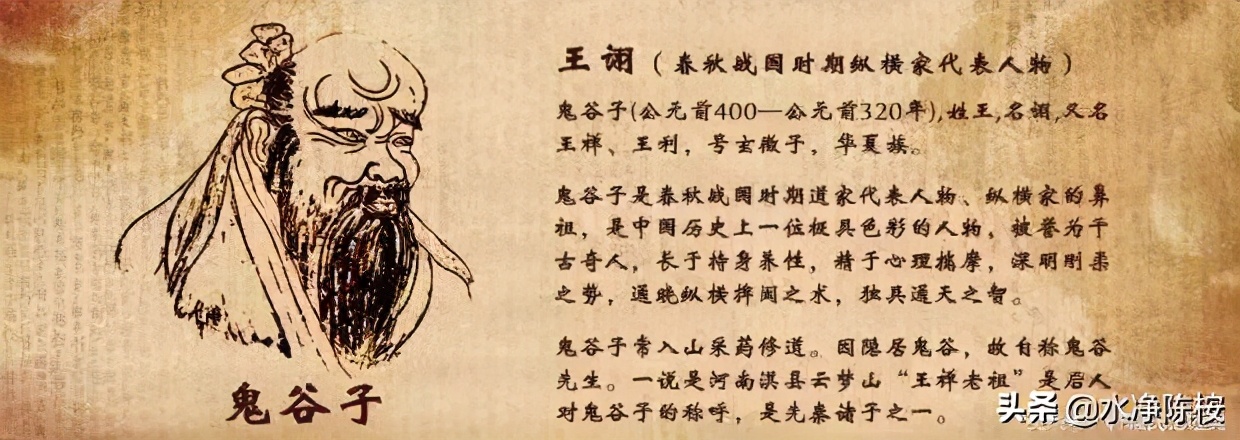 王诩（春秋战国时期纵横家代表人物）
鬼谷子(公元前400—公元前320年),姓王,名诩,又名
王禅、王利，号玄微子，华夏族。
鬼谷子是春秋战国时期道家代表人物、纵横家的鼻
祖，是中国历史上一位极具色彩的人物，被誉为千
古奇人，长于持身养性，精于心理揣摩，深明刚柔
之势，通晓纵横捭阖之术，独具通天之智。
鬼谷子常入山采药修道。因隐居鬼谷，故自称鬼谷
先生。一说是河南淇县云梦山“王禅老祖”是后人
对鬼谷子的称呼，是先秦诸子之一。
鬼谷子
头条 @水净陈桉